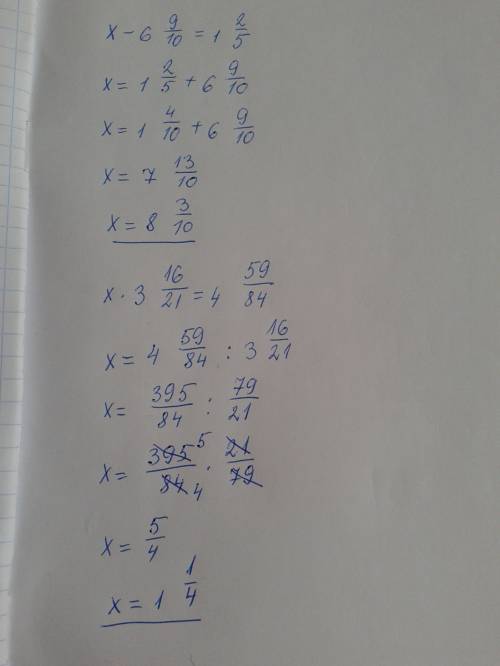 x - 6 9/10 = 1 2/5
x = 1 2/5 + 6 9/10
x = 1 4/10 + 6 9/10
x = 7 13/10
x = 8 3/10
x · 3 16/21 = 4 59/84
x = 4 59/84 : 3 16/21
x = 395/84 : 79/21
x = 395 5/84 4 · 21/79
x = 5/4
x = 1 1/4